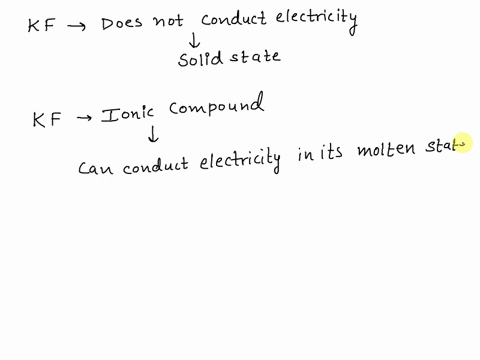 KF → Does not conduct electricity
↓
Solid state
KF → Ionic compound
↓
Can conduct electricity in its molten stat